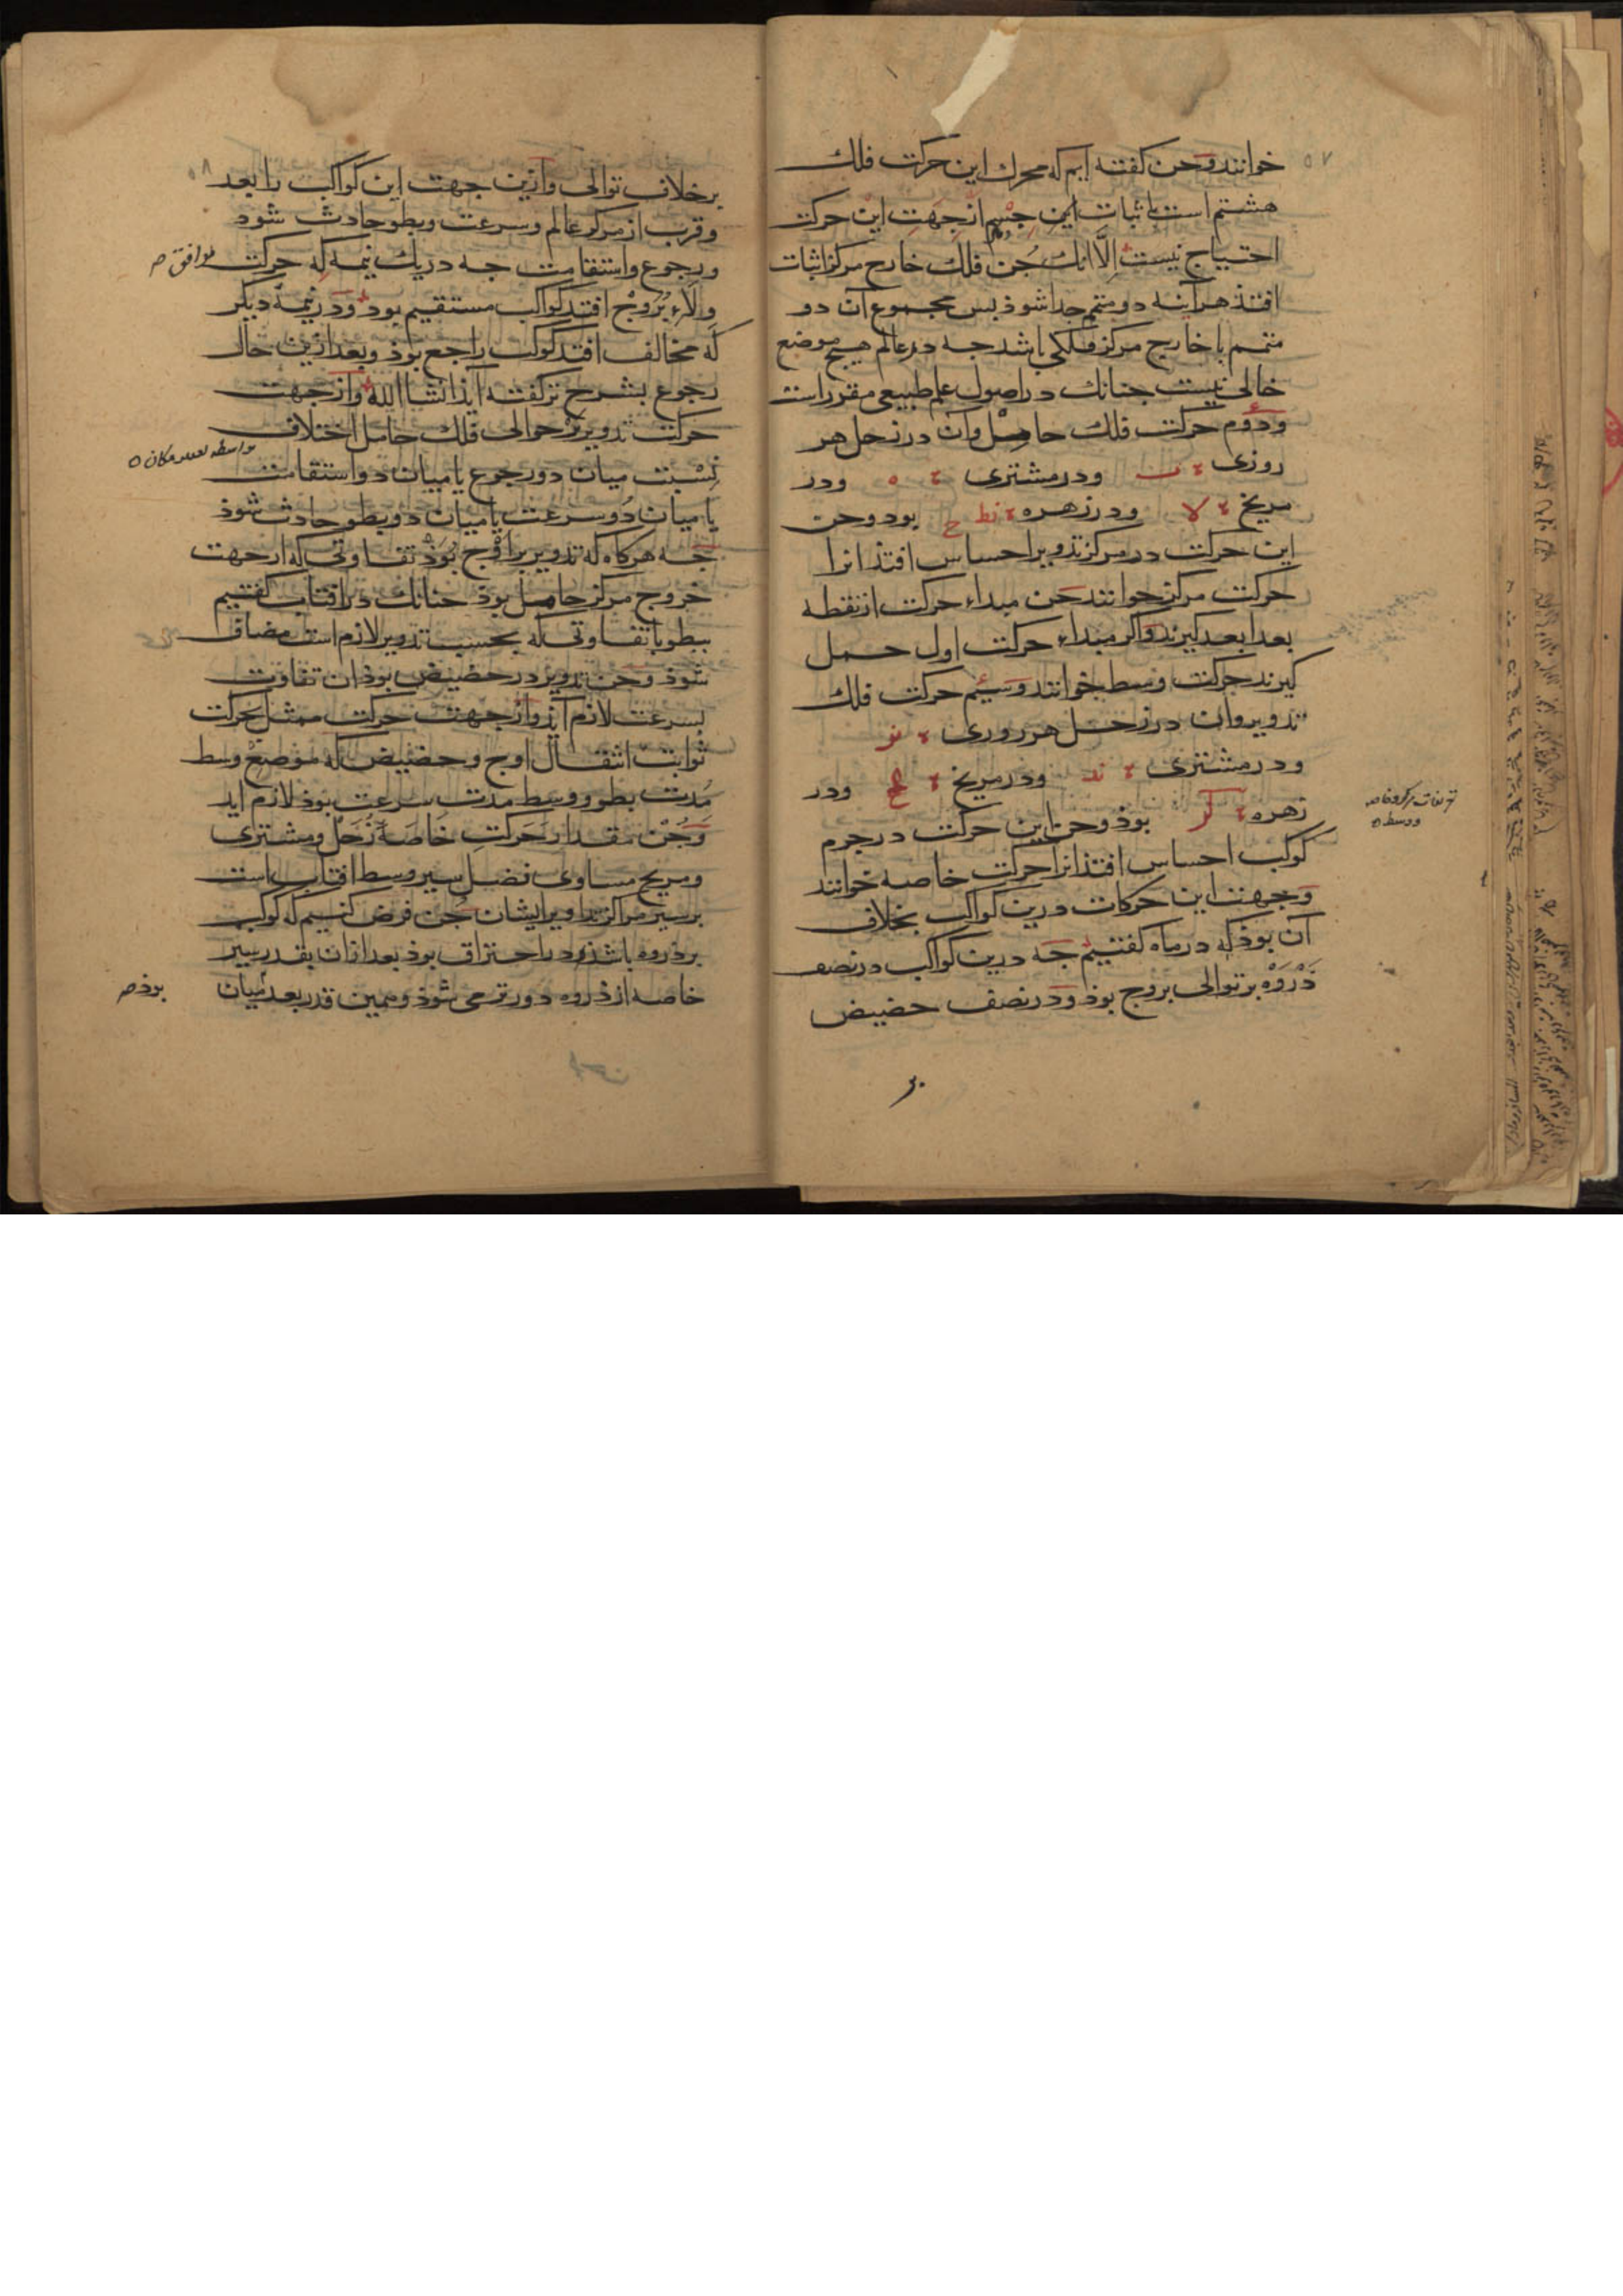 خوانند و جن کفته ایم که محرک این حرکت فلک
هشتم است باثبات این جسم از جهت این حرکت
احتیاج نیست الّا انک جن فلک خارج مرکز اثبات
افتذ هرآینه دو متمم جدا شوذ بس مجموع آن دو
متمم با خارج مرکز فلکی باشد جه در عالم هیچ موضع
خالی نیست جنانک در اصول علم طبیعی مقرر است
و دوم حرکت فلک حامل و آن در زحل هر
روزی ودر مشتری ه ودر
مریخ لا ودر زهره نط ح بود وجن
این حرکت در مرکز تدویر احساس افتذ انرا
حرکت مرکز خوانند جن مبداء حرکت از نقطه
بعد ابعد کیرند و اکر مبداء حرکت اول حمل
کیرند حرکت وسط خوانند و سیم حرکت فلک
تدویر وان در زحل هر روزی نز
ودر مشتری ند ودر مریخ ودر
زهره لز بوذ وجن این حرکت در جرم
کوکب احساس افتذ انرا حرکت خاصه خوانند
وجهت این حرکات درین کواکب بخلاف
آن بوذ که در ماه کفتیم جه درین کواکب در نصف
ذروه بر توالی بروج بوذ ودر نصف حضیض
بر
۵۷
بر خلاف توالی وازین جهت این کواکب را بعد
وقرب از مرکز عالم وسرعت وبطو حادث شود
ورجوع واستقامت جه در یک نیمه که حرکت موافق صح
ولاء بروج افتد کواکب مستقیم بود ودر نیمه دیکر
که مخالف افتد کوکب راجع بوذ وبعد ازین حال
رجوع بشرح تر کفته آیذ انشا الله واز جهت
حرکت تدویر بر حوالی فلک حامل اختلاف
نسبت میان دو رجوع یا میان دو استقامت
یا میان دو سرعت یا میان دو بطو حادث شوذ
جه هرکاه که تدویر بر اوج بوذ تفاوتی که از جهت
خروج مرکز حامل بوذ جنانک در افتاب کفتیم
ببطو با تفاوتی که بحسب تدویر لازم است مضاف
شوذ وجن تدویر در حضیض بوذ ان تفاوت
بسرعت لازم آیذ واز جهت حرکت ممثل بحرکت
ثوابت انتقال اوج وحضیض که موضع وسط
مدت بطو ووسط مدت سرعت بوذ لازم اید
وجن مقدار حرکت خاصه زحل ومشتری
ومریخ مساوی فضل سیر وسط افتاب است
بر سیر مراکز تداویر ایشان جن فرض کنیم که کوکب
بر ذروه باشد ودر احتراق بوذ بعد ازان بقدر سیر
خاصه از ذروه دورتر می شوذ وهمین قدر بعد میان بوذ صح
۵۸